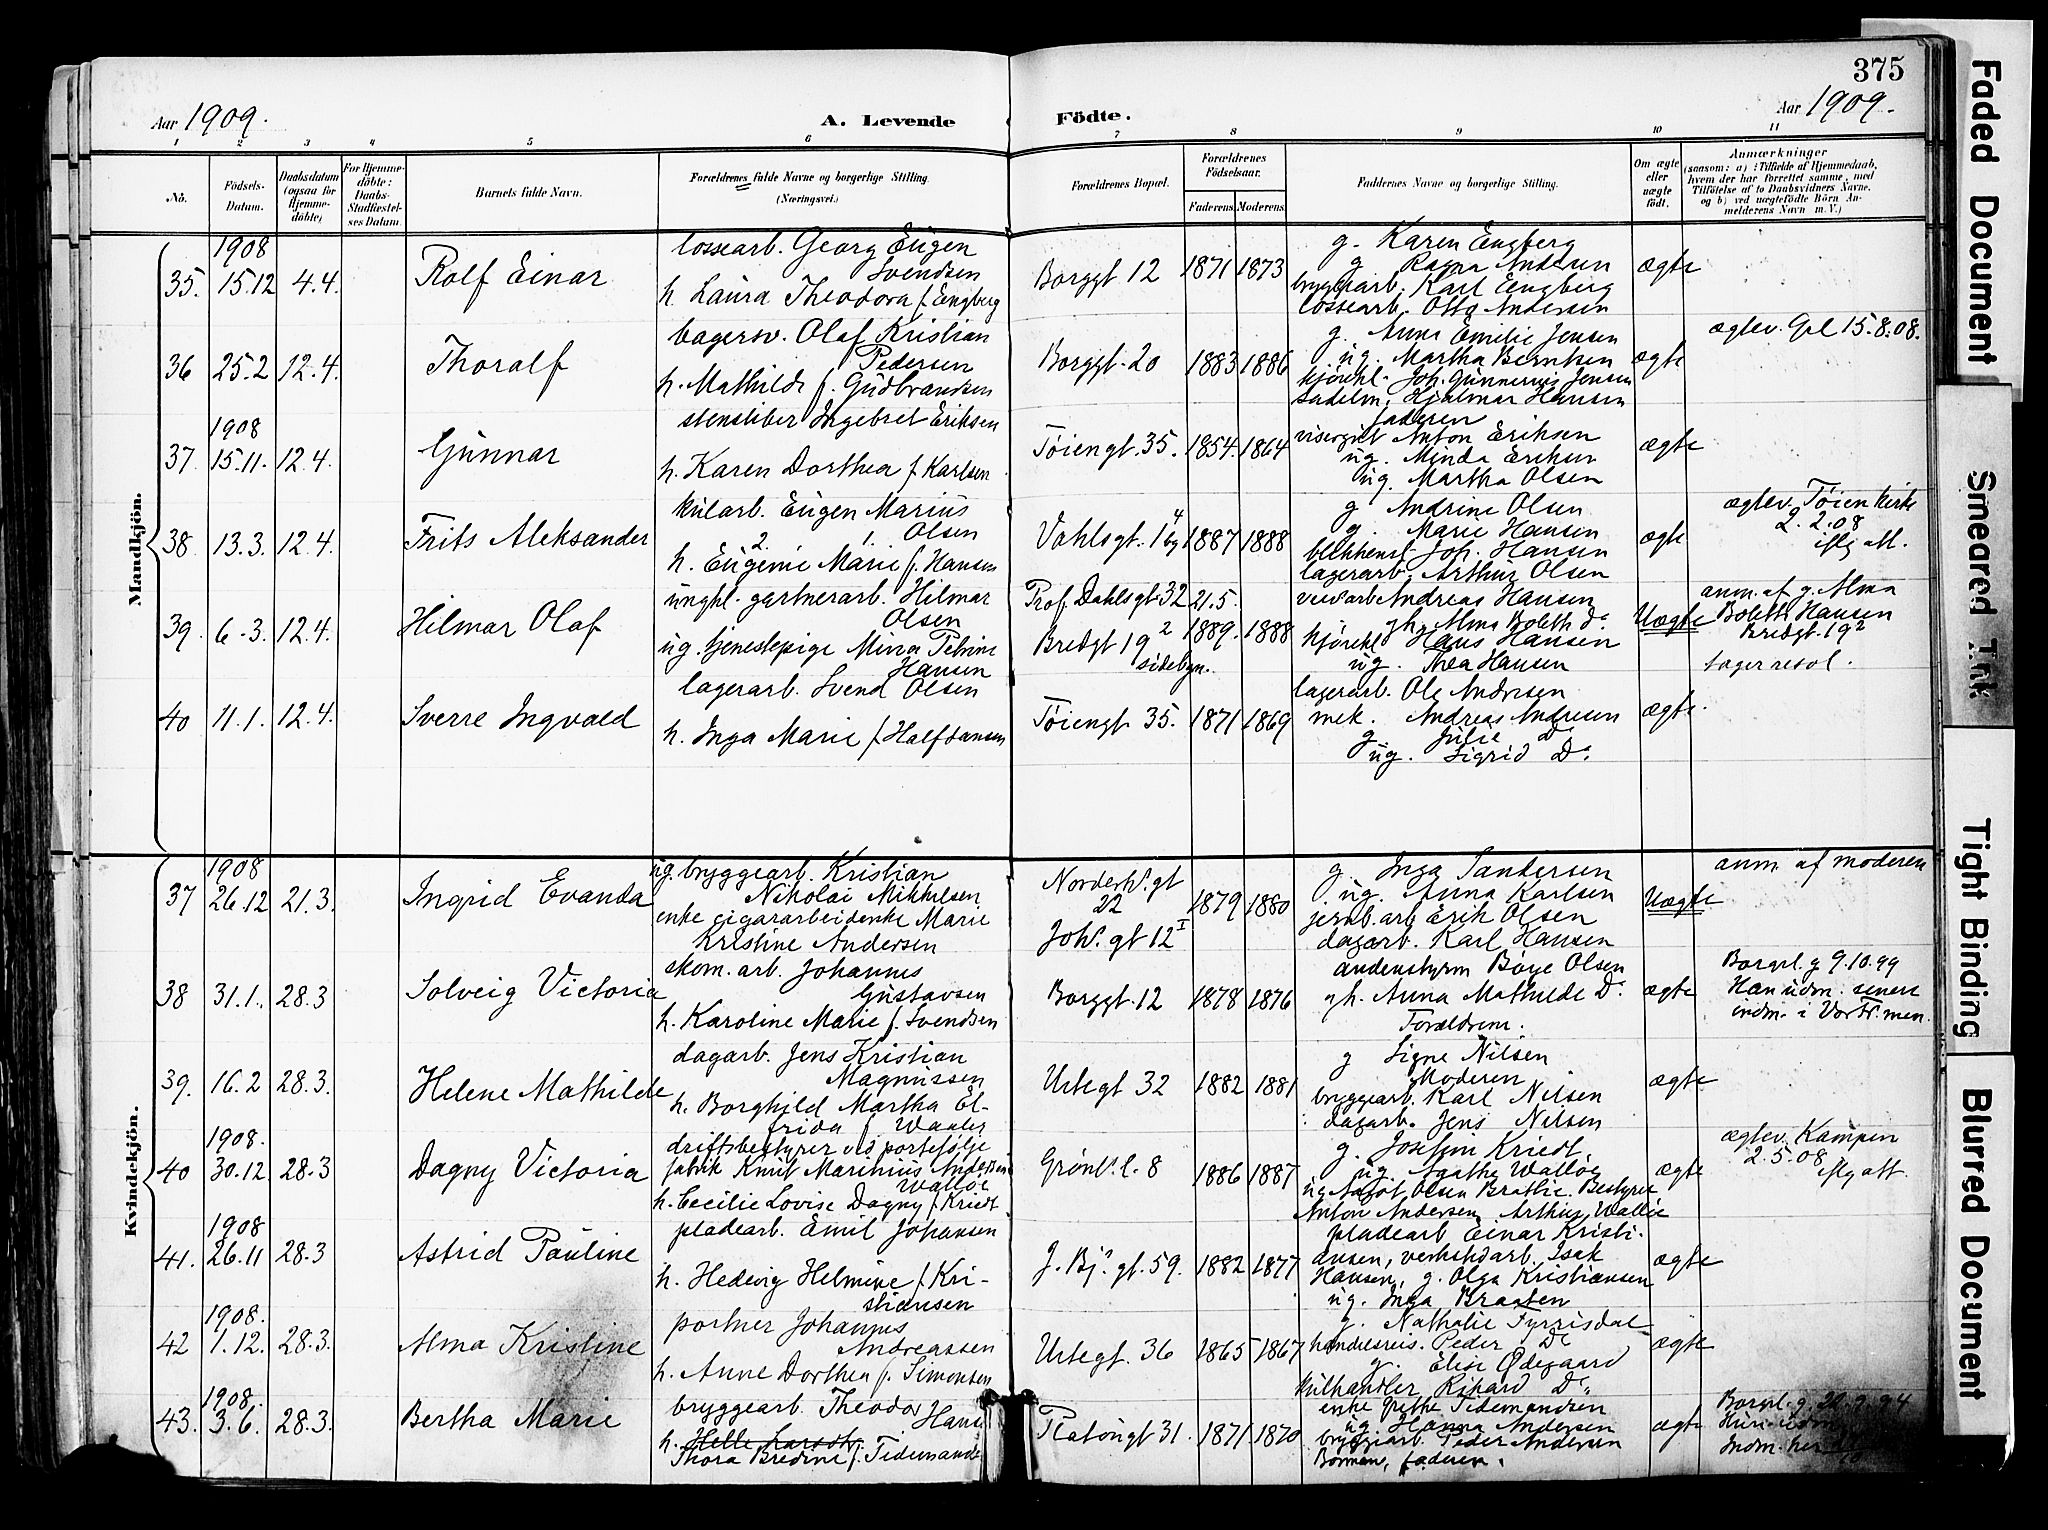 375
Aar 1909.
A. Levende Födte.
Aar 1909.
1 2 3 4 5 6 7 8 9 10 11
No.
Födsels-Datum.
Daabsdatum (ogsaa för Hjemmedöbte)
For Hjemmedöbte: Daabs-Stadfæstelses Datum.
Barnets fulde Navn.
Forældrenes fulde Navne og borgerlige Stilling. (Næringsvei.)
Forældrenes Bopæl.
Forældrenes Födselsaar.
Faderens Moderens
Faddernes Navne og borgerlige Stilling.
Om ægte eller uægte födt.
Anmærkninger
(saasom: a) i Tilfælde af Hjemmedaab, hvem der har forrettet samme, med Tilföielse af to Daabsvidners Navne, og b) ved uægtefödte Börn Anmelderens Navn m. V.)
Mandkjön.
35. 1908 15.12 4.4. Rolf Einar
lossearb. Georg Eugen
Svendsen
h. Laura Theodora f. Engberg
Borggt 12 1871 1873
g. Karen Engberg
g. Ragna Andersen
bryggearb. Karl Engberg
lossearb. Otto Andersen
ægte
36 25.2 12.4. Thoralf
bagersv. Olaf Kristian
Pedersen
h. Mathilde f. Gudbrandsen
Borggt. 20 1883 1886
g. Anna Emilie Jensen
ug. Martha Berntsen
kjörekl. Joh. Gunnerius Jensen
sadelm. Hjalmar Hansen
ægte
ægtev. Grl 15.8.08.
37. 1908 15.11. 12.4. Gunnar
stensliber Ingebret Eriksen
h. Karen Dorthea f. Karlsen
Töiengt. 35. 1854. 1864
faderen
visergut Anton Eriksen
ug. Minda Eriksen
ug. Martha Olsen
ægte
38 13.3. 12.4. Frits Aleksander
kularb. Eugen Marius
2. 1. Olsen
h. Eugenie Marie f. Hansen
Vahlsgt. 1 1887 1888
g Andrine Olsen
g. Marie Hansen
blikkensl. Joh. Hansen
lagerarb. Arthur Olsen
ægte
ægtev. Töien kirke
2.2.08
iflg att.
39. 6-3. 12.4. Hilmar Olaf
ungkl. gartnerarb. Hilmar
Olsen
ug. tjenestepige Minda Petrine
Hansen
Prof. Dahlsgt 32
Bredgt 19 2
sidebgn.
21.5. 1889. 1888
Andreas Hansen
gh. Alma Boleth Do
kjörekl Hans Hansen
ug. Thea Hansen
Uægte
anm. af g. Alma
Boleth Hansen
Bredgt. 19 2
tager resol.
40 11.1. 12.4. Sverre Ingvald
lagerarb. Svend Olsen
h. Inga Marie f. Halfdansen
Töiengt 35. 1871 1869
lagerarb. Ole Andresen
mek. Andreas Andresen
g. Julie Do
ug. Sigrid Do
ægte.
Kvindekjön.
37 1908 26.12 21.3. Ingrid Evanda
ug. bryggearb. Kristian
Nikolai Mikkelsen
enke cigararbeiderske Marie
Kristine Andersen
Norderh. gt
22
Joh. gt 12 I
1879 1880
g. Inga Sandersen
ug. Anna Karlsen
jernb. arb Erik Olsen
dagarb. Karl Hansen
Uægte
anm. af moderen
38 31.1. 28.3 Solveig Victoria
skom. arb. Johannes
Gustavsen
h. Karoline Marie f. Svendsen
Borggt. 12 1878 1876
andenstyrm Böye Olsen
gh. Anna Mathilde Do
Forældrene.
ægte
Borgerl. g 9.10.99
Han udm. senere
indm. i Vor Fr. men.
39. 16.2 28.3. Helene Mathilde
dagarb. Jens Kristian
Magnussen
h. Borghild Martha El-
frida f. Waaler
Urtegt 32 1882 1881
g Signe Nilsen
Moderen
bryggearb. Karl Nilsen
dagarb. Jens Nilsen
ægte
40 1908. 30.12. 28.3 Dagny Victoria
driftsbestyrer ved portefölje
fabrik Knut Marinius Andersen
Wallöe
h. Cecilie Lovise Dagny f. Kriedt
Grönl. l. 8 1886 1887
g. Josefin Kriedt,
ug. Agathe Walloe
ug Aagot Olsen Brathie. Bestyrer
Anton Andersen, Arthur Wallie
ægte
ægtev. Kampen
2.5.08
iflg att.
41. 1908 26.11 28.3 Astrid Pauline
pladearb. Emil Johansen
h. Hedvig Helmine f. Kri-
stiansen
J. Bj. gt. 59. 1882 1877
pladearb Einar Kristi-
ansen, verkstdarb. Isak
Hansen, g. Olga Kristiansen
ug. Inga Braaten
ægte
42 1908. 1.12. 28.3. Alma Kristine
portner Johannes
Andreassen
h. Anne Dorthea f. Simonsen
Urtegt. 36 1865 1867
g. Nathalie Fyrrisdal
handelsreis. Peder Do
g. Elise Ödegaard
kulhandler Rikard Do,
ægte
43. 1908. 3.6. 28.3. Bertha Marie
bryggearb. Theodor Hans
h. Thora Bredine f. Tidemands
Platöugt 31 1871 1870
enke Grethe Tidemandsen
ug. Hanna Andersen
bryggearb. Peder Andersen
Borman, faderen.
ægte
Borgerl. g. 94
Hun udm.
Indm. her
Faded Document
Smeared Ink
Tight Binding
Blurred Document